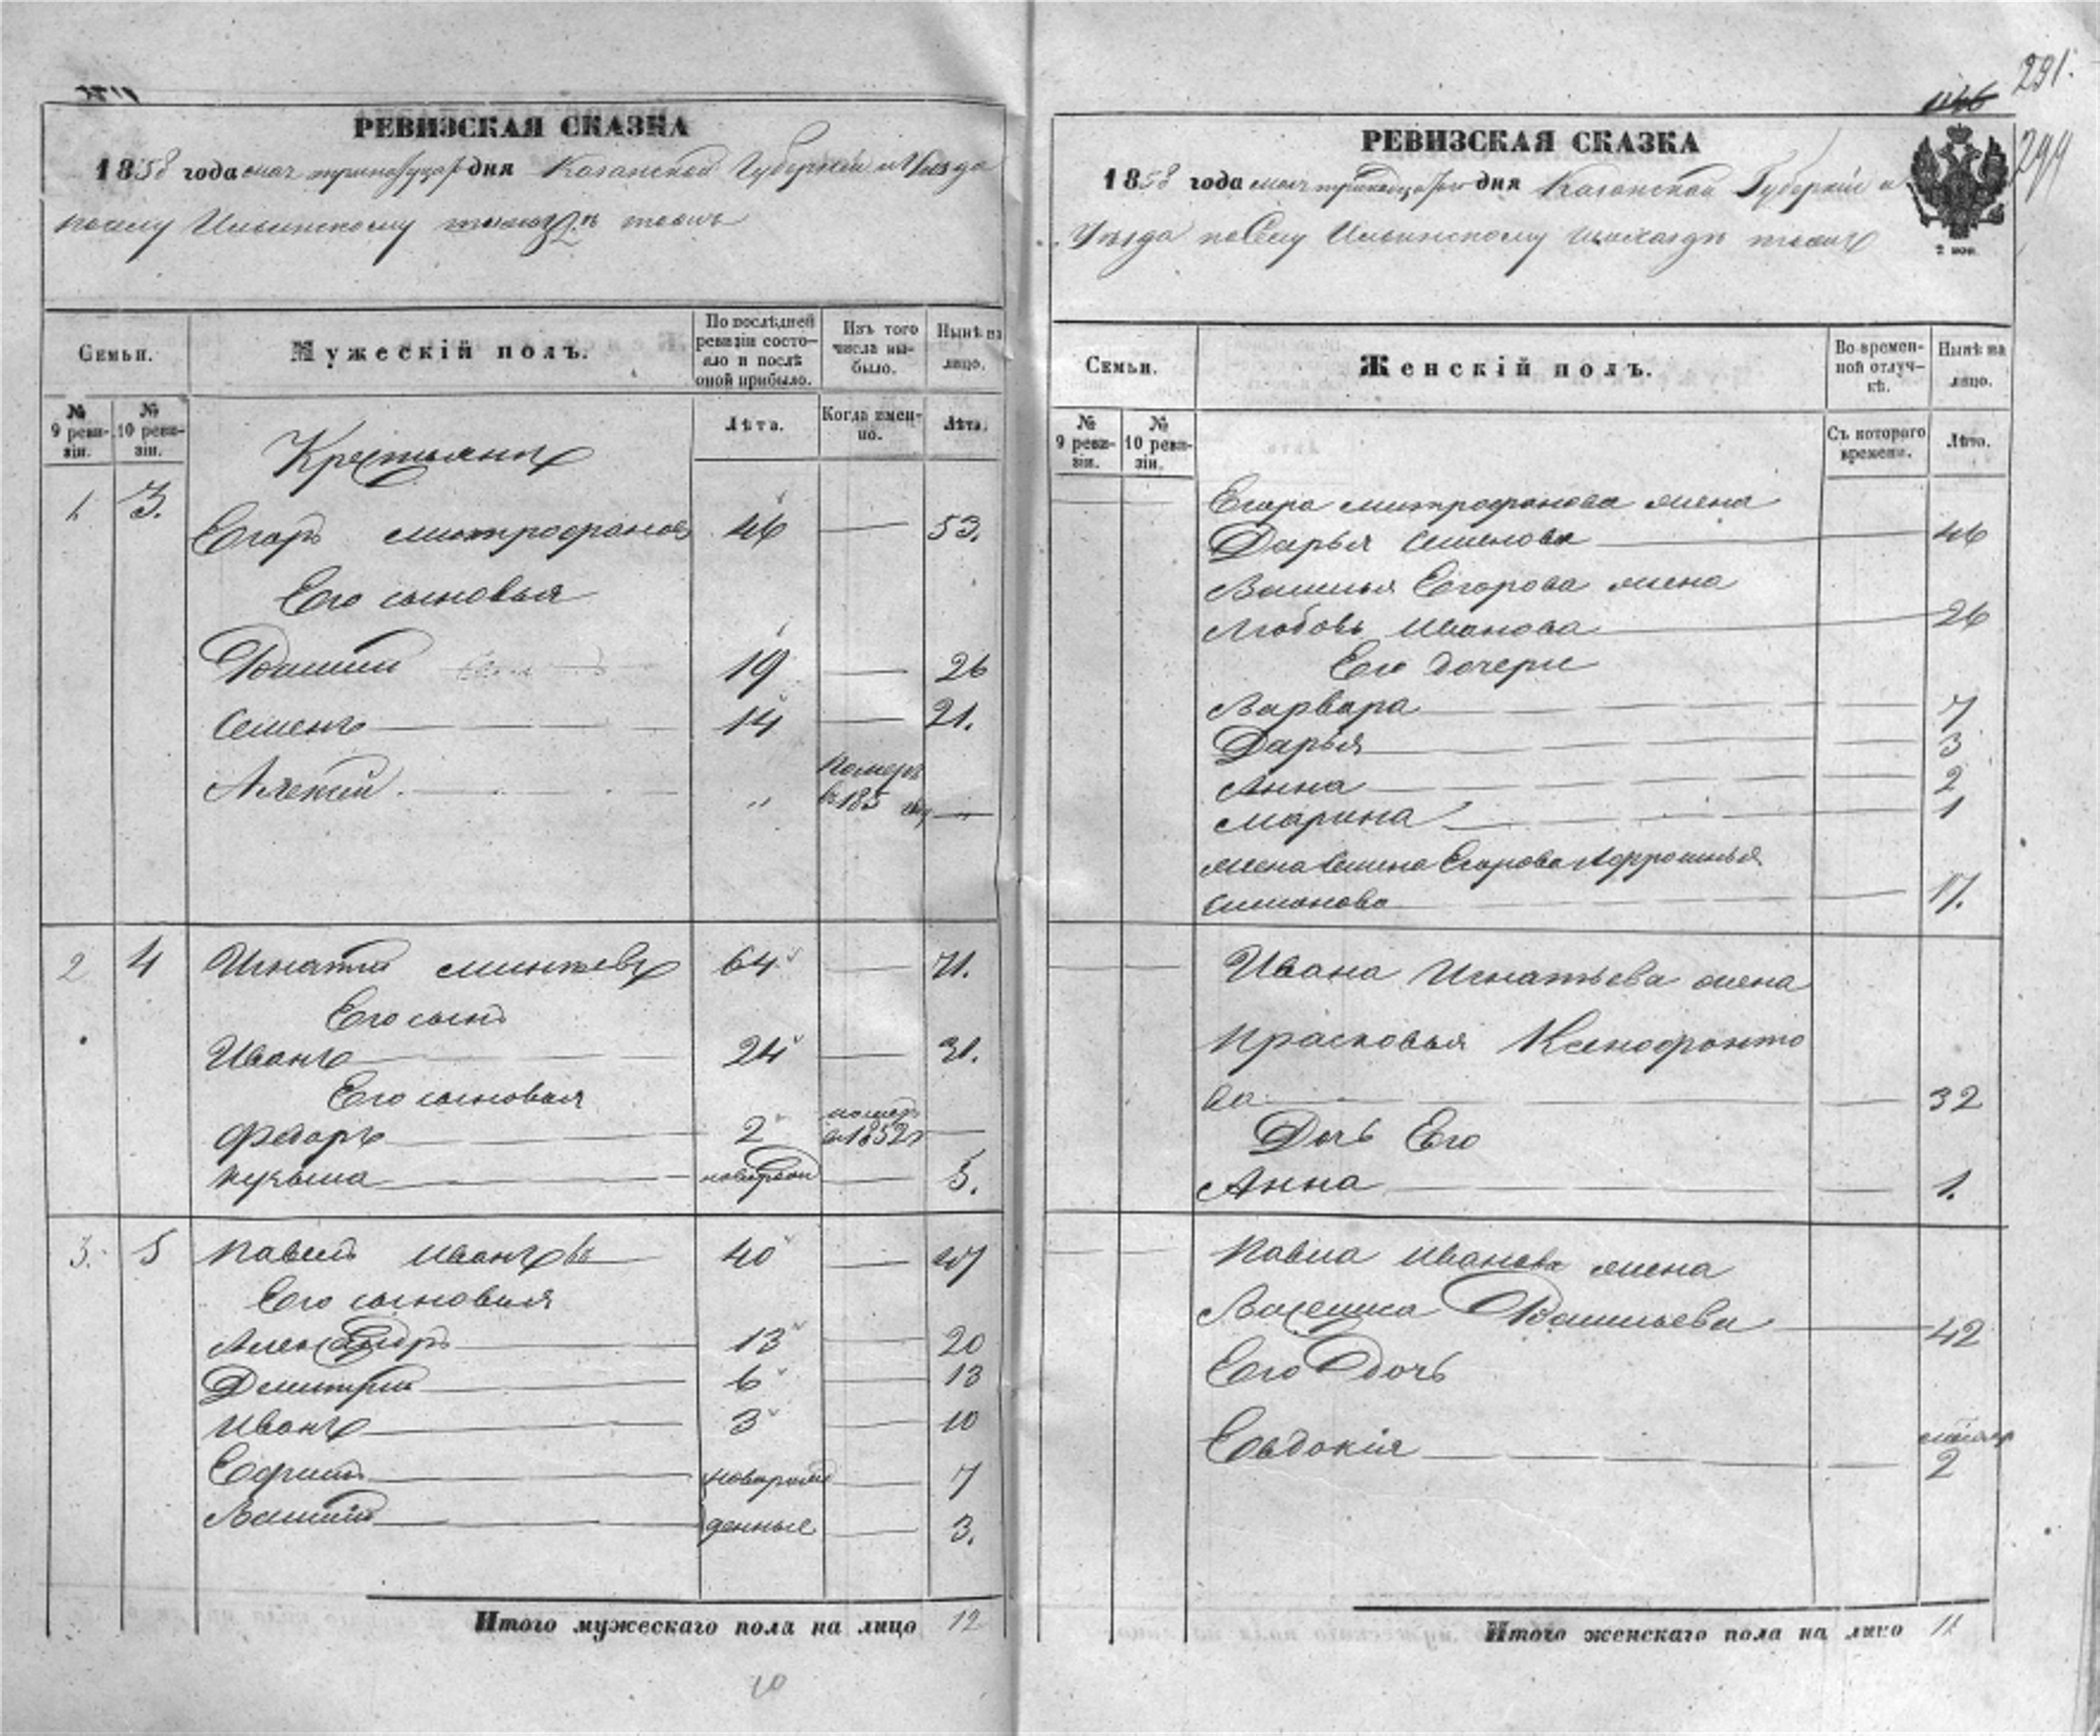 РЕВИЗСКАЯ СКАЗКА
1858 года мая дня Казанской Губернии и Уѣзда
Ильинскому
Семьи.
Мужескій полъ.
По послѣдней ревизіи состояло и послѣ оной прибыло.
Изъ того числа выбыло.
Нынѣ на лицо.
№ 9 ревизіи.
№ 10 ревизіи.
Лѣта.
Когда именно.
Лѣта.
Крестьяне
1 3. Егоръ Митрофановъ 46 — 53.
Его сыновья
Василий 19 — 26
Семенъ 14 — 21.
Алексѣй " Померъ в 185 —
2 4 Игнатий 64 — 71.
Его сынъ
Иванъ 24 — 31.
Его сыновья
Федоръ 2 померъ в 1852 —
Кузьма — 5.
3. 5 Павелъ Ивановъ 40 — 47
Его сыновья
Александръ 13 — 20
Дмитрий 6 — 13
Иванъ 3 — 10
Ефимъ новорож — 7
Василий денные — 3.
Итого мужескаго пола на лицо 12
10
291.
294
РЕВИЗСКАЯ СКАЗКА
1858 года мая дня Казанской Губерніи и
Уѣзда Ильинскому
2 коп.
Семьи.
Женскій полъ.
Во временной отлучкѣ.
Нынѣ на лицо.
№ 9 ревизіи.
№ 10 ревизіи.
Съ котораго времени.
Лѣта.
Егора Митрофанова жена
Дарья Семенова 46
Василья Егорова жена
Любовь Иванова 26
Его дочери
Варвара 7
Дарья 3
Анна 2
Марина 1
жена Семена Егорова
17.
Ивана Игнатьева жена
Прасковья Ксенофонто
ва 32
Дочь Его
Анна 1.
Павла Иванова жена
Васильева 42
Его дочь
Евдокія 2
Итого женскаго пола на лицо 11